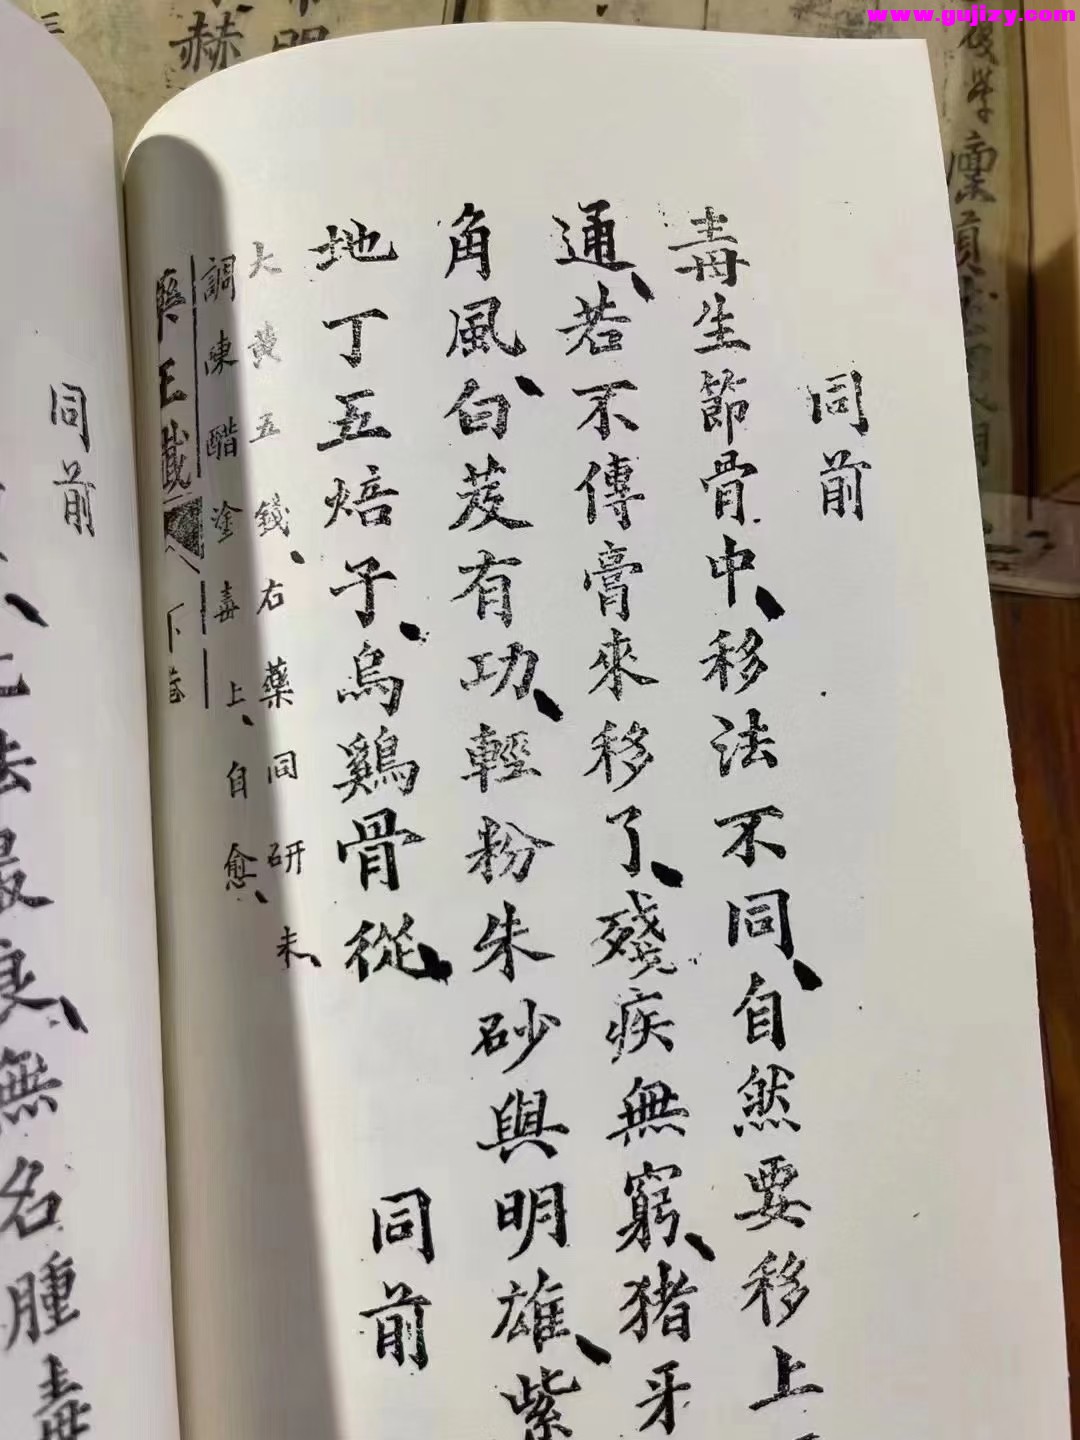 www.gujizy.com
同前
毒生節骨中、移法不同、自然要移上
通、若不傳膏來移了、殘疾無窮、猪牙
角風、白芨有功、輕粉朱砂與明雄、紫
地丁五焙子、烏鷄骨從、 同前
大黄五錢、右藥同研末、
調陳醋塗毒上、自愈、
藥王讖 下卷
同前
法最良、無名腫毒
赫
明